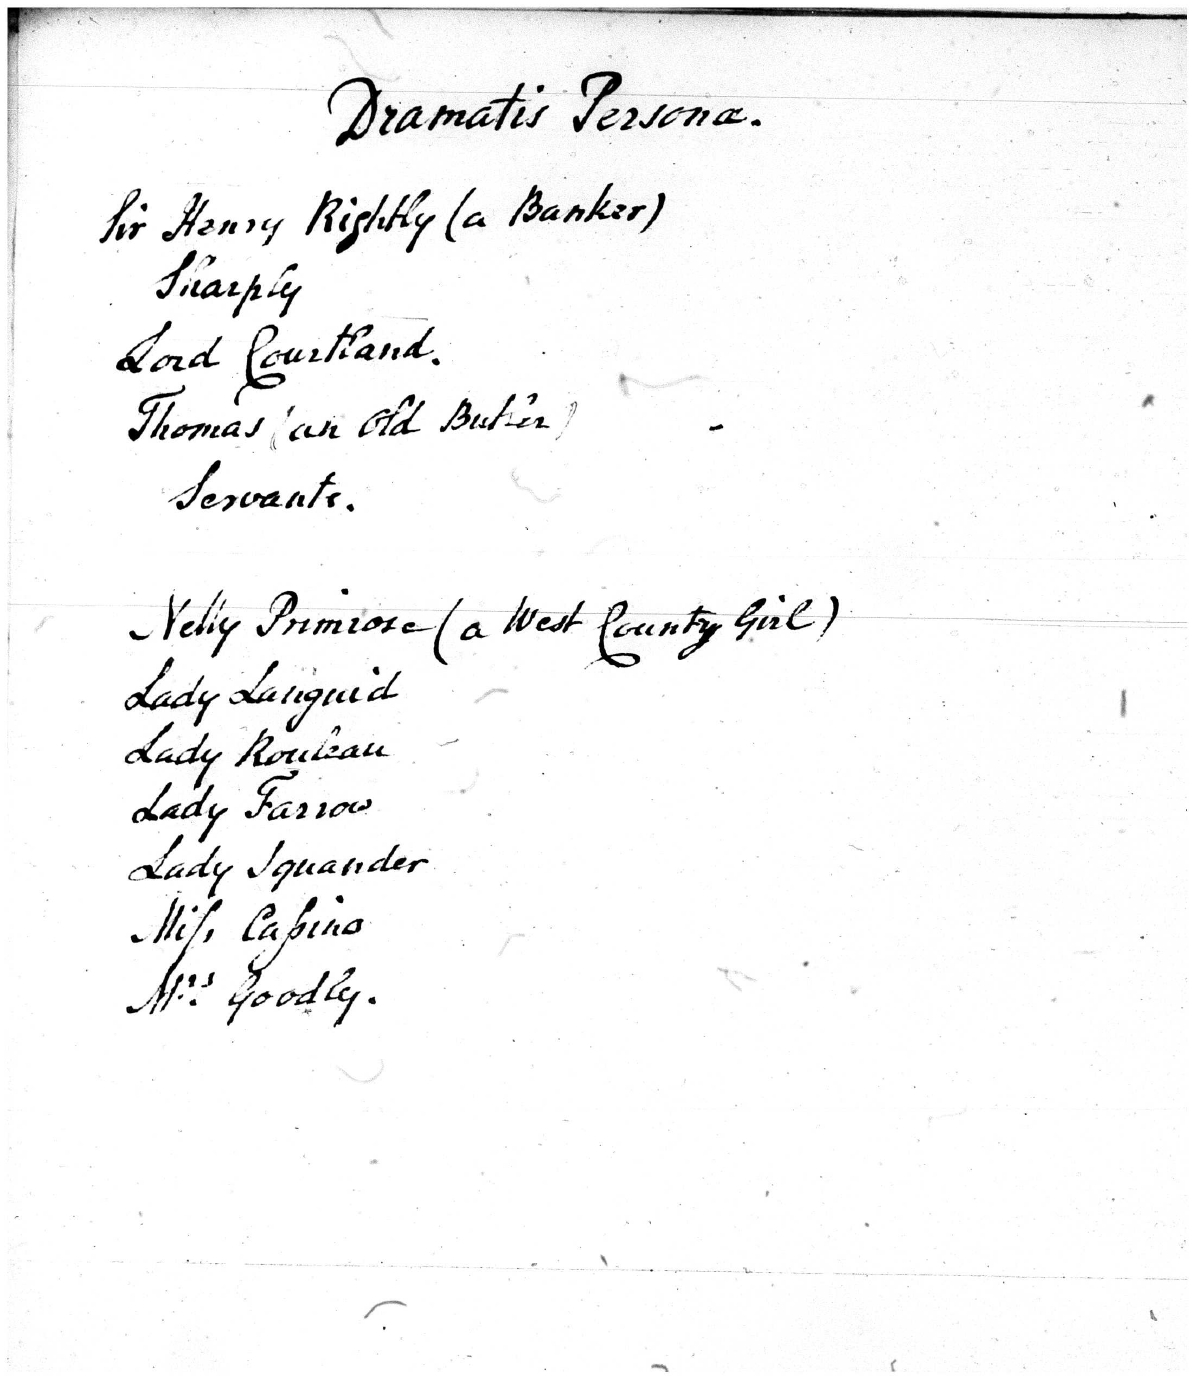 Dramatis Personæ.
Sir Henry Rightly (a Banker)
Sharply
Lord Courtland.
Thomas (an Old Butler)
Servants.
Nelly Primrose (a West County Girl)
Lady Languid
Lady Rouleau
Lady Farrow
Lady Squander
Miſs Caſsino
Mrs Goodly.